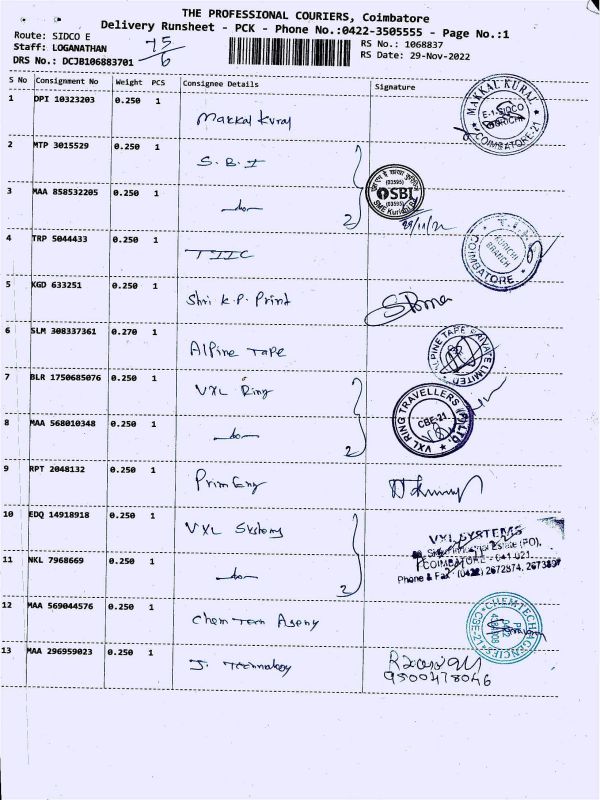 THE PROFESSIONAL COURIERS, Coimbatore
Delivery Runsheet - PCK - Phone No.:0422-3505555 - Page No.:1
Route: SIDCO E
RS No.: 1068837
Staff: LOGANATHAN
15/6
RS Date: 29-Nov-2022
DRS No.: DCJB106883701
S No Consignment No Weight PCS Consignee Details Signature
1 DPI 10323203 0.250 1 Makkal Kural
MAKKAL KURAL
E-1-SIDCO
KURICHI
COIMBATORE-21
2 MTP 3015529 0.250 1 S.B.I
3 MAA 858532205 0.250 1 -do- 2
(03595)
SBI
(03595)
SME Kurichi
29/11/22
4 TRP 5044433 0.250 1 TIIC
T.I.I.C.
KURICHI
BRANCH
COIMBATORE
5 KGD 633251 0.250 1 Shri K.P. Print
6 SLM 308337361 0.270 1 Alpine Tape
ALPINE TAPE PRIVATE LIMITED
7 BLR 1750685076 0.250 1 VXL Ring
8 MAA 568010348 0.250 1 -do- 2
VXL RING TRAVELLERS (P) LTD.
CBE-21
9 RPT 2048132 0.250 1 Prim Eng
10 EDQ 14918918 0.250 1 VXL Systems
11 NKL 7968669 0.250 1 -do- 2
VXL SYSTEMS
Estate (PO),
COIMBATORE - 641 021.
Phone & Fax (0422) 2672874, 2673897
12 MAA 569044576 0.250 1 Chem Tech Ageny
CHEMTECH AGENCIES
CBE-21
13 MAA 296959023 0.250 1 J. Technology
9500478046